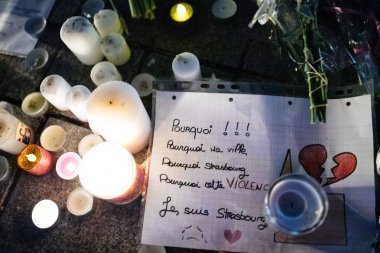 Pourquoi !!!
Pourquoi Ma ville,
Pourquoi Strasbourg
Pourquoi cette VIOLENCE
Je suis Strasbourg